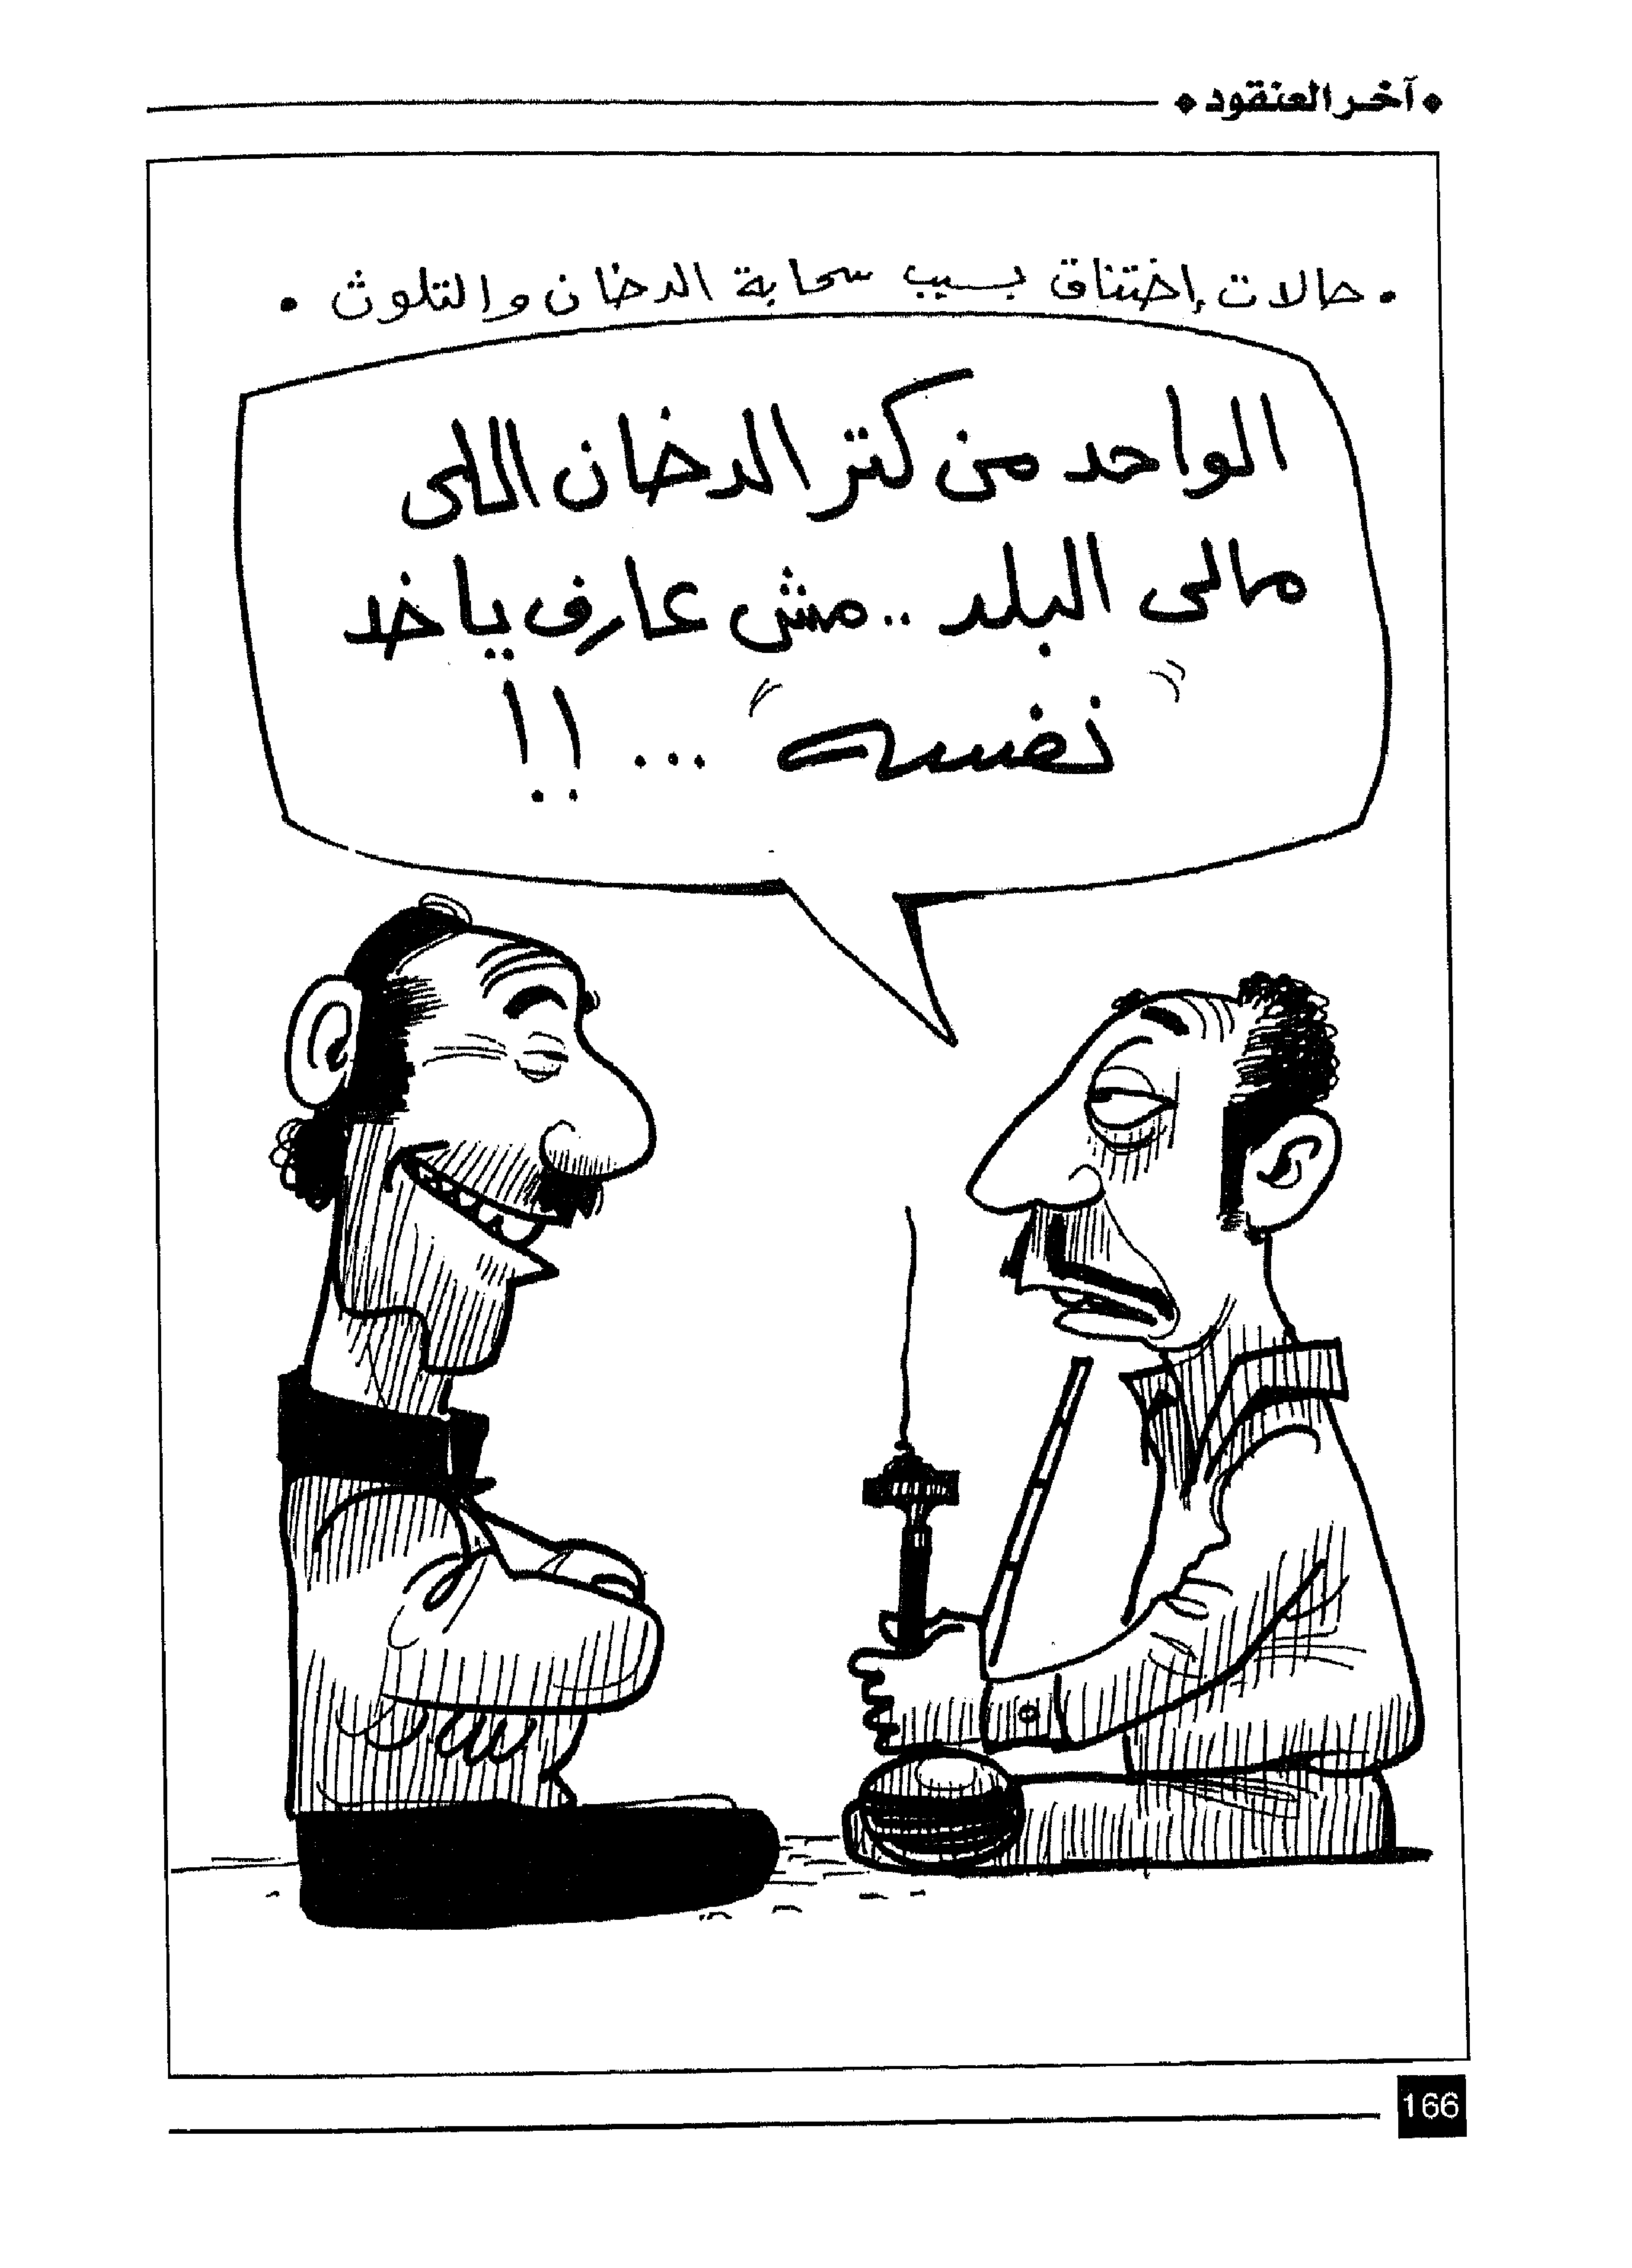 آخر العنقود
• حالات إختناق بسبب سحابة الدخان والتلوث •
الواحد من كتر الدخان اللى
مالى البلد .. مش عارف ياخد
"نفسه" ... !!
166